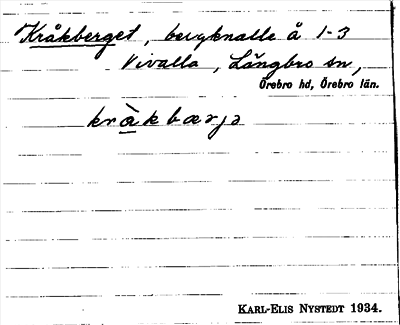 Kråkberget, bergknalle å 1-3
Vivalla, Längbro sn,
Örebro hd, Örebro län.
kràkbærjə
KARL-ELIS NYSTEDT 1934.